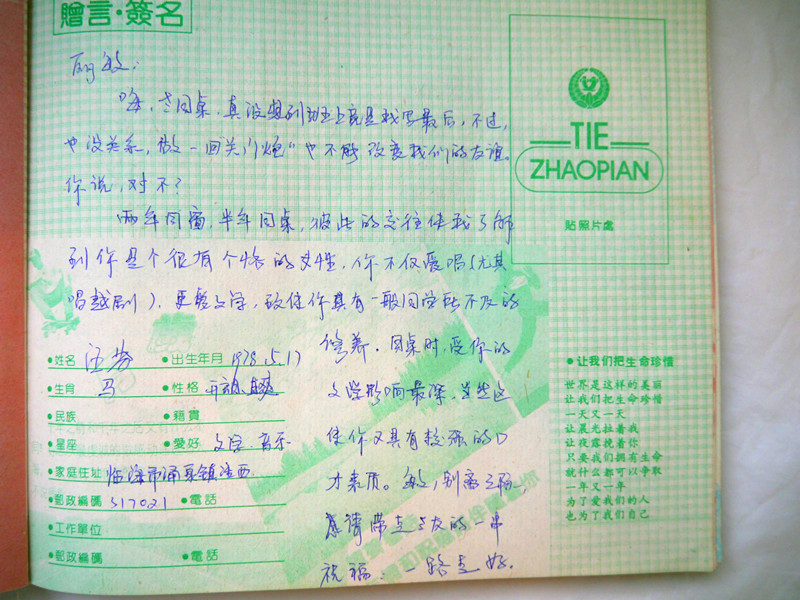 贈言·簽名
丽敏：
嗨，老同桌，真没想到班上竟是我写最后，不过，
也没关系，做一回"关门炮"也不能改变我们的友谊。
你说，对不？
两年同窗，半年同桌，彼此的交往使我了解
到你是个很有个性的女性，你不仅爱唱（尤其
唱越剧），更爱文学，致使你具有一般同学所不及的
修养。同桌时，受你的
文学影响最深，
使你又具有较强的口
才素质。敏，别离之际，
请带走老友的一串
祝福：一路走好。
TIE
ZHAOPIAN
貼照片處
●姓名 汪芬 ●出生年月 1978.5.17
●生肖 马 ●性格 开朗
●民族 ●籍貫
●星座 ●愛好 文学、音乐
●家庭住址 临海市涌泉镇洛西
●郵政編碼 317021 ●電話
●工作單位
●郵政編碼 ●電話
●让我们把生命珍惜
世界是这样的美丽
让我们把生命珍惜
一天又一天
让晨光拉着我
让夜露挽着你
只要我们拥有生命
就什么都可以争取
一年又一年
为了爱我们的人
也为了我们自己